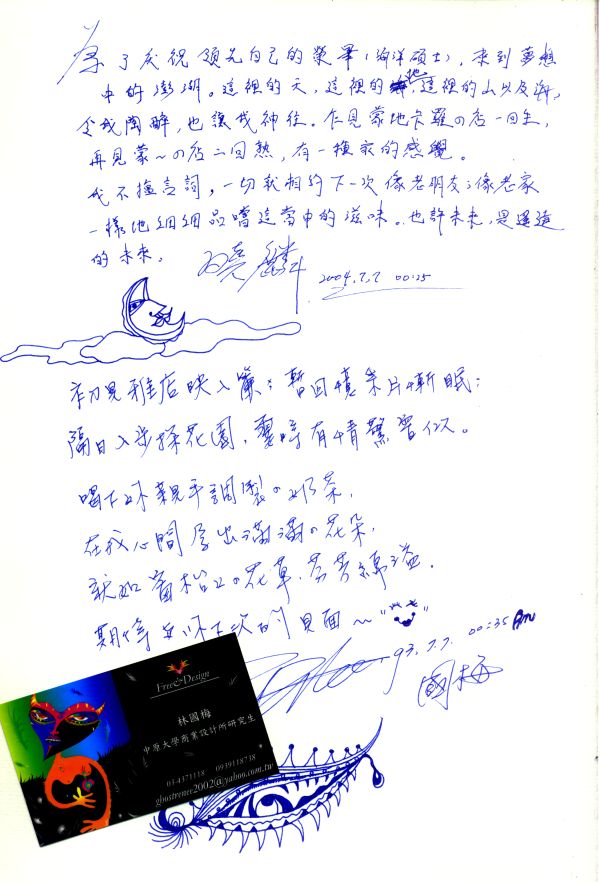 為了庆祝領先自己的榮畢(海洋碩士),來到夢想
中的澎湖。這裡的天,這裡的地,這裡的山以及海,
令我陶醉,也讓我神往。乍見蒙地卡羅の店一回生,
再見蒙~の店二回熟,有一種家的感覺。
我不擅言詞,一切就相約下一次像老朋友;像老家
一樣地細細品嚐這當中的滋味。也許未來,是遙遠
的未來。
2004.7.7 00:25
初見雅店映入簾;暫回憶
隔日入步探花園,
喝下妳親手調製の奶茶,
在我心間 出滿滿の花朵,
就如窗檯上の花草,芬芳
期待與妳下次的見面~
93.7.7. 00:35
國梅
Free&Design
林國梅
中原大學商業設計所研究生
03-4371118 0939118738
ghostrence2002@yahoo.com.tw